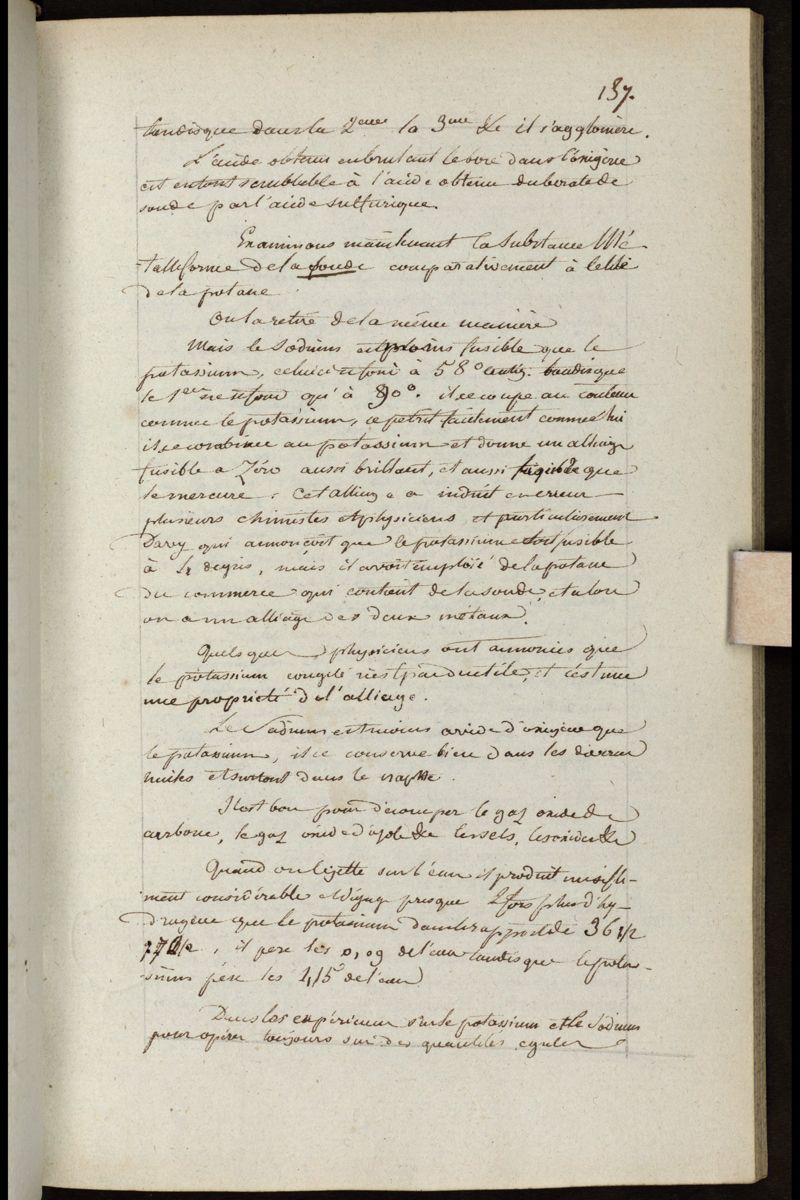 137.
tandisque dans la 2eme la 3me &c il s'agglomère.
L'acide obtenu en brulant le bore dans l'oxigène
est entout semblable à l'acide obtenu du borate de
soude par l'acide sulfurique.
Examinons maintenant la Substance Mé-
-talliforme de la soude comparativement à celle
de la potasse.
On la retire de la même manière
Mais le Sodium est moins fusible que le
potassium, celui ci se fond à 58° centig. tandisque
le 1er ne se fond qu'à 90°. il se coupe au couteau
comme le potassium, se petrit facilement comme lui
il se combine au potassium et donne un alliage
fusible a Zéro aussi brillant, et aussi liquide que
le mercure. Cet alliage a induit en erreur
plusieurs chimistes et physiciens, et particulierement
Davy qui annonçoit que le potassium etoit fusible
à degrés, mais il avoit emploié de la potasse
du commerce qui contient de la soude, et alors
on a un alliage des deux métaux.
Quelques physiciens ont annoncés que
le potassium congelé n'est pas ductile, et c'est
une propriété de l'alliage.
Le Sodium est moins avide d'oxigène que
le potassium, il se conserve bien dans les diverses
huiles et surtout dans le naphte.
Il est bon pour décomposer le gaz oxide de
carbone, le gaz oxide d'azote &c les sels, les oxides &c
Quand on le jette sur l'eau il produit un siffle-
ment considérable et dégage presque 2 fois plus d'hy-
-drogène que le potassium dans le rapport de 36 1/2
, il pèse les 0,09 de l'eau tandis que le potas-
sium pèse les 1,15 de l'eau
Dans les expériences sur le potassium et le Sodium
pour opérer toujours sur des quantités egales